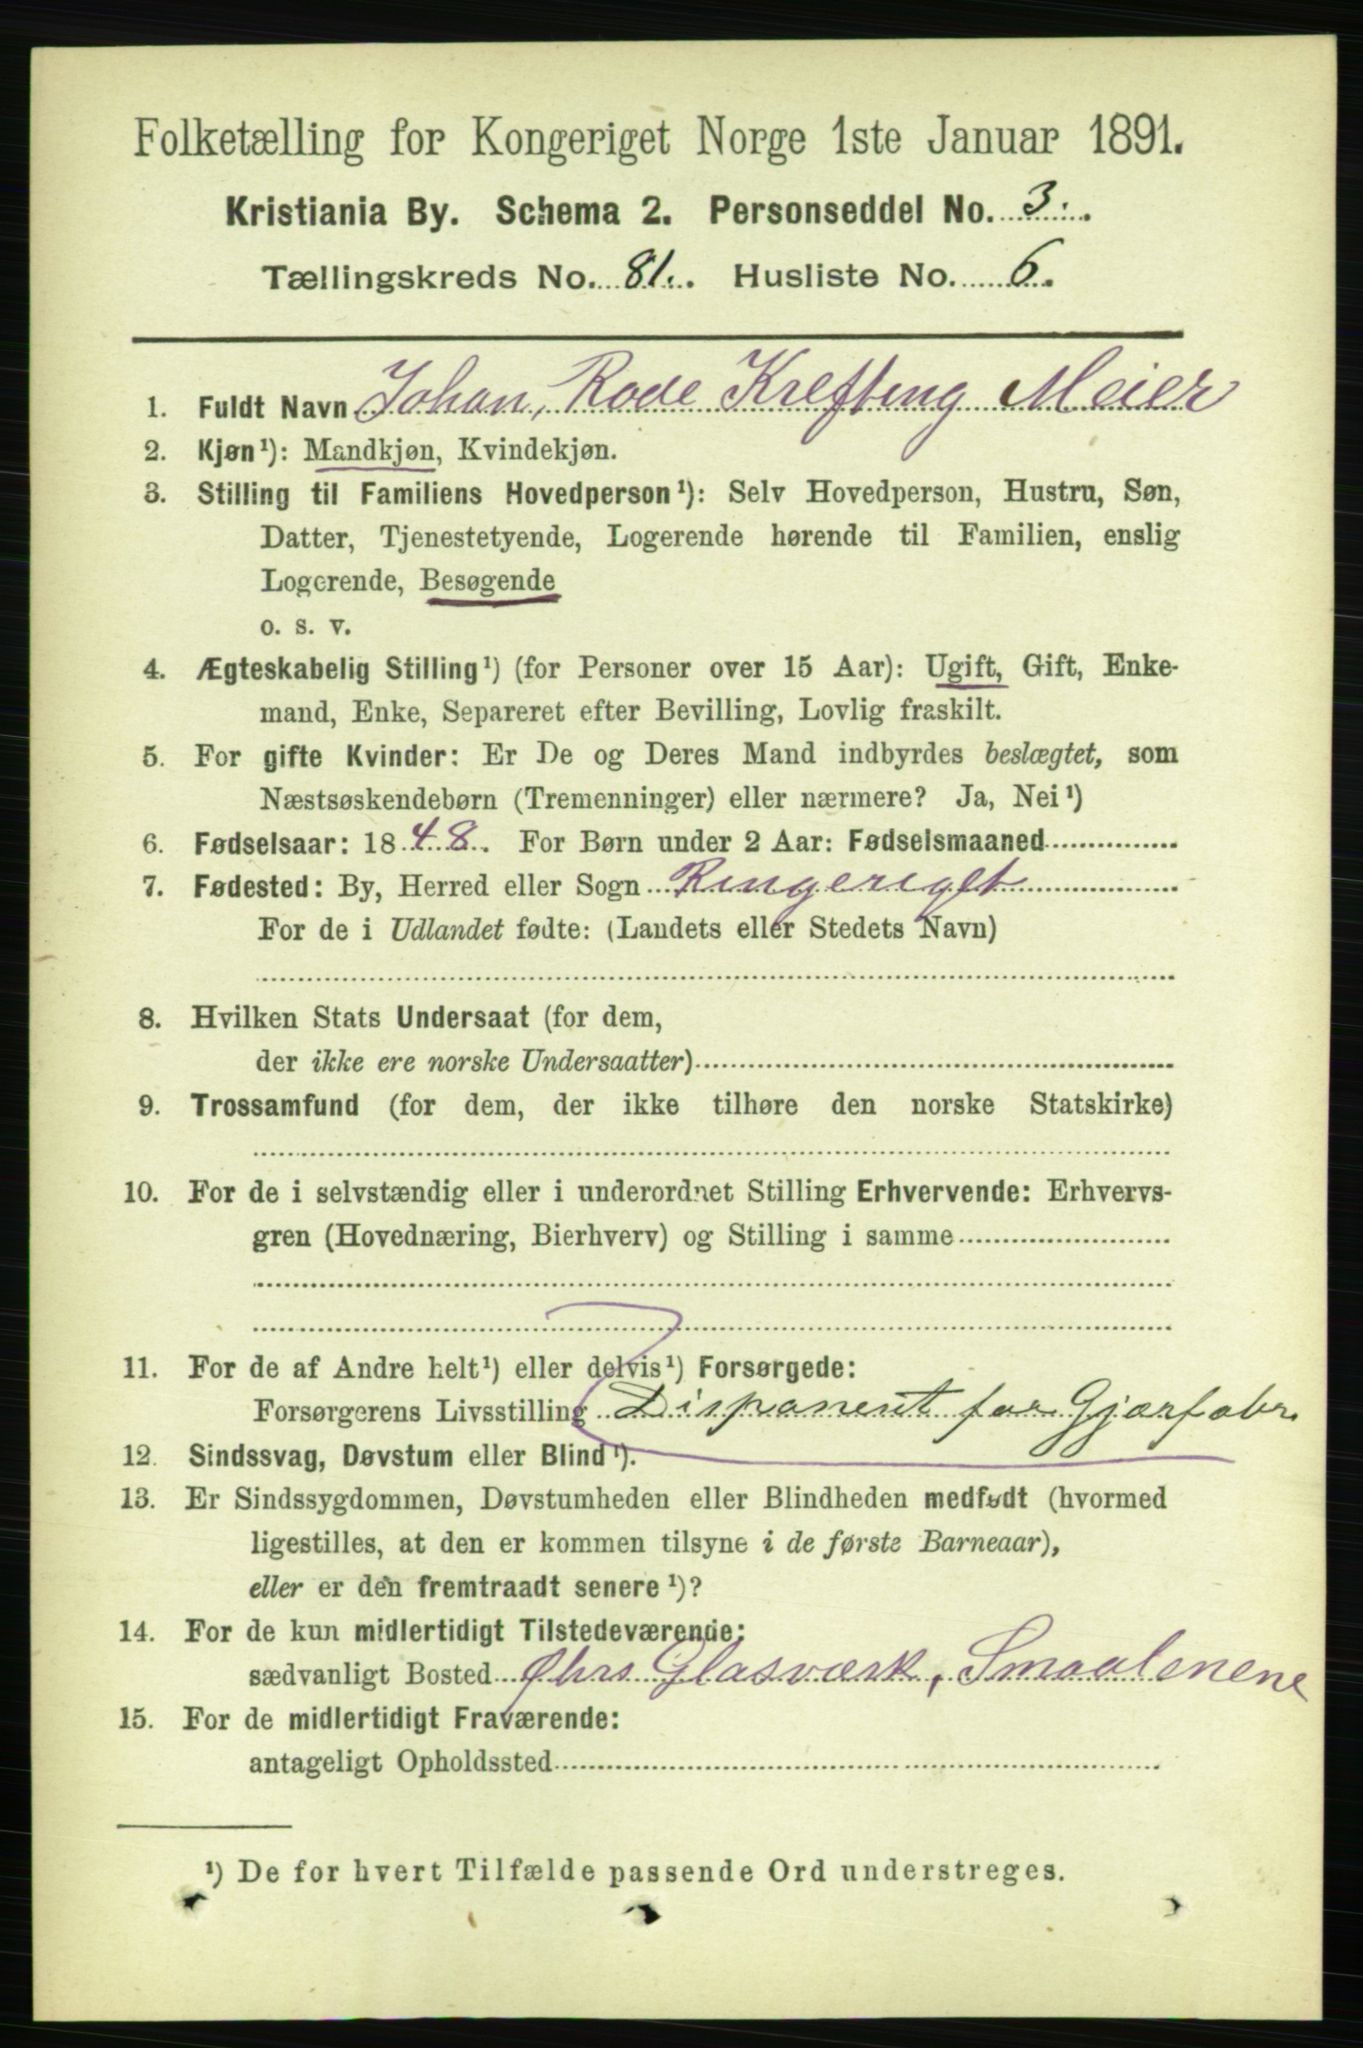 Folketælling for Kongeriget Norge 1ste Januar 1891.
Kristiania By. Schema 2. Personseddel No. 3.
Tællingskreds No. 81. Husliste No. 6.
1. Fuldt Navn Johan, Rode Krefting Meier
2. Kjøn¹): Mandkjøn, Kvindekjøn.
3. Stilling til Familiens Hovedperson¹): Selv Hovedperson, Hustru, Søn,
Datter, Tjenestetyende, Logerende hørende til Familien, enslig
Logerende, Besøgende
o. s. v.
4. Ægteskabelig Stilling¹) (for Personer over 15 Aar): Ugift, Gift, Enke-
mand, Enke, Separeret efter Bevilling, Lovlig fraskilt.
5. For gifte Kvinder: Er De og Deres Mand indbyrdes beslægtet, som
Næstsøskendebørn (Tremenninger) eller nærmere? Ja, Nei¹)
6. Fødselsaar: 1848. For Børn under 2 Aar: Fødselsmaaned
7. Fødested: By, Herred eller Sogn Ringeriget
For de i Udlandet fødte: (Landets eller Stedets Navn)
8. Hvilken Stats Undersaat (for dem,
der ikke ere norske Undersaatter)
9. Trossamfund (for dem, der ikke tilhøre den norske Statskirke)
10. For de i selvstændig eller i underordnet Stilling Erhvervende: Erhvervs-
gren (Hovednæring, Bierhverv) og Stilling i samme
11. For de af Andre helt¹) eller delvis¹) Forsørgede:
Forsørgerens Livsstilling Disponent for Gjærfabr.
12. Sindssvag, Døvstum eller Blind¹).
13. Er Sindssygdommen, Døvstumheden eller Blindheden medfødt (hvormed
ligestilles, at den er kommen tilsyne i de første Barneaar),
eller er den fremtraadt senere¹)?
14. For de kun midlertidigt Tilstedeværende:
sædvanligt Bosted Glasværk, Smaalenene
15. For de midlertidigt Fraværende:
antageligt Opholdssted
¹) De for hvert Tilfælde passende Ord understreges.